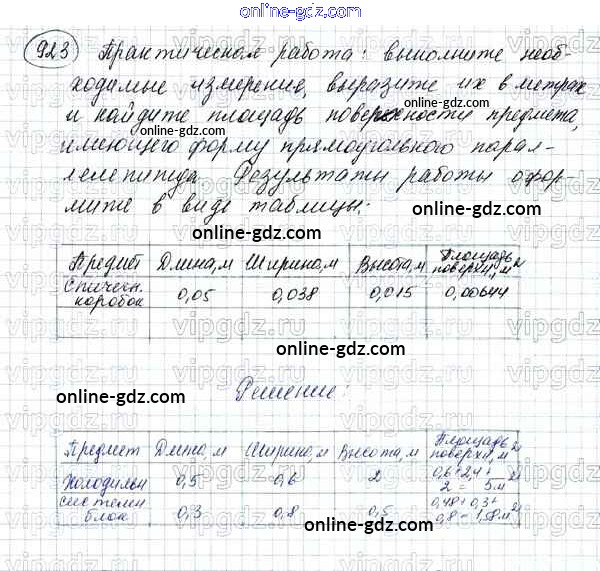 online-gdz.com
923 Практическая работа: выполните необ-
ходимые измерения, выразите их в метрах
online-gdz.com
и найдите площадь поверхности предмета,
имеющего форму прямоугольного парал-
лелепипеда. Результаты работы офор-
мите в виде таблицы:
online-gdz.com
Предмет Длина,м Ширина,м Высота,м Площадь поверхн., м²
Спичечн. коробок 0,05 0,038 0,015 0,00644
online-gdz.com
online-gdz.com
Решение:
Предмет Длина,м Ширина,м Высота,м Площадь поверхн., м²
Холодильн 0,5 0,6 2 0,6+2,4+
2 = 5м²
системн блок 0,3 0,8 0,5 0,48+0,3+
0,8=1,58м²
online-gdz.com
vipgdz.ru